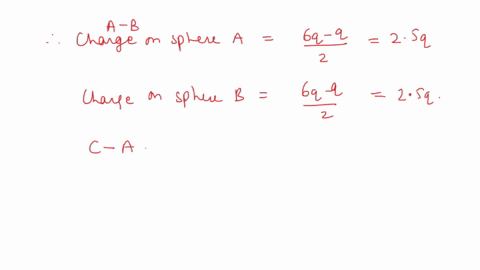 A-B
∴ Charge on sphere A = 6q-q/2 = 2.5q
Charge on sphere B = 6q-q/2 = 2.5q.
C-A.